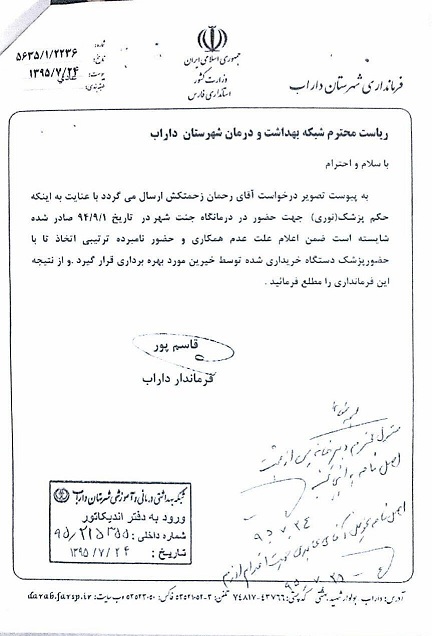 جمهوری اسلامی ایران
وزارت کشور
استانداری فارس
فرمانداری شهرستان داراب
شماره: ۵۶۳۵/۱/۲۲۳۶
تاریخ: ۱۳۹۵/۷/۲۴
پیوست:
طبقه‌بندی:
ریاست محترم شبکه بهداشت و درمان شهرستان داراب
با سلام و احترام
به پیوست تصویر درخواست آقای رحمان زحمتکش ارسال می گردد با عنایت به اینکه
حکم پزشک(نوری) جهت حضور در درمانگاه جنت شهر در تاریخ ۹۴/۹/۱ صادر شده
شایسته است ضمن اعلام علت عدم همکاری و حضور نامبرده ترتیبی اتخاذ تا با
حضورپزشک دستگاه خریداری شده توسط خیرین مورد بهره برداری قرار گیرد .و از نتیجه
این فرمانداری را مطلع فرمائید .
قاسم پور
فرماندار داراب
مسئول محترم دبیرخانه پس از ثبت
اصل نامه
۹۵،۷،۲۴
اصل نامه تحویل آقای
شبکه بهداشتی درمانی و آموزشی شهرستان داراب
ورود به دفتر اندیکاتور
شماره داخلی:
تاریخ: ۱۳۹۵/۷/۲۴
آدرس: داراب بولوار شهید بهشتی کدپستی: ۴۳۷۶۶-۷۴۸۱۷ تلفن: ۳-۵۳۵۲۱۰۵۲ فاکس: ۵۳۵۲۳۰۵۰ وب سایت: darab.farsp.ir